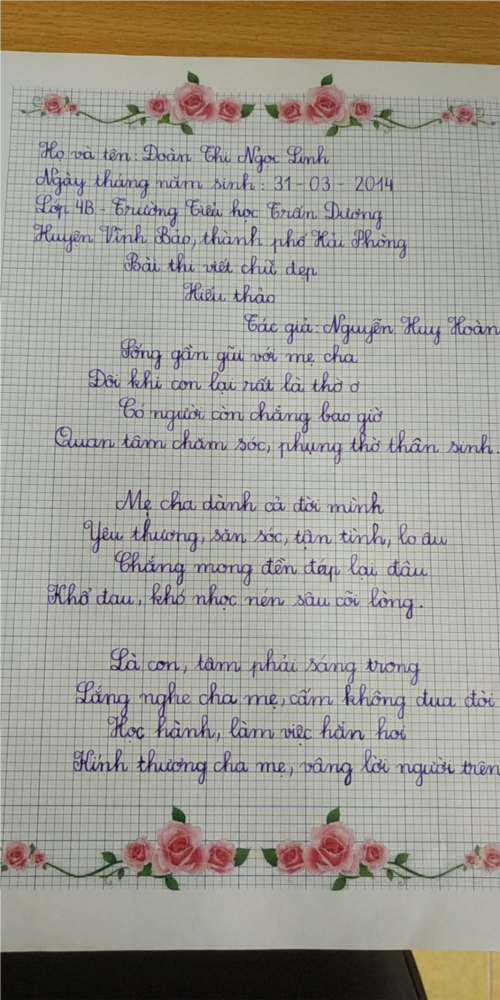 Họ và tên: Đoàn Thị Ngọc Linh
Ngày tháng năm sinh: 31-03-2014
Lớp 4B - Trường Tiểu học Trấn Dương
Huyện Vĩnh Bảo, thành phố Hải Phòng
Bài thi viết chữ đẹp
Hiếu thảo
Tác giả: Nguyễn Huy Hoàn
Sống gần gũi với mẹ cha
Đôi khi con lại rất là thờ ơ
Có người còn chẳng bao giờ
Quan tâm chăm sóc, phụng thờ thân sinh.
Mẹ cha dành cả đời mình
Yêu thương, săn sóc, tận tình, lo âu
Chẳng mong đền đáp lại đâu
Khổ đau, khó nhọc nén sâu cõi lòng.
Là con, tâm phải sáng trong
Lắng nghe cha mẹ, cấm không đua đòi
Học hành, làm việc hẳn hoi
Kính thương cha mẹ, vâng lời người trên